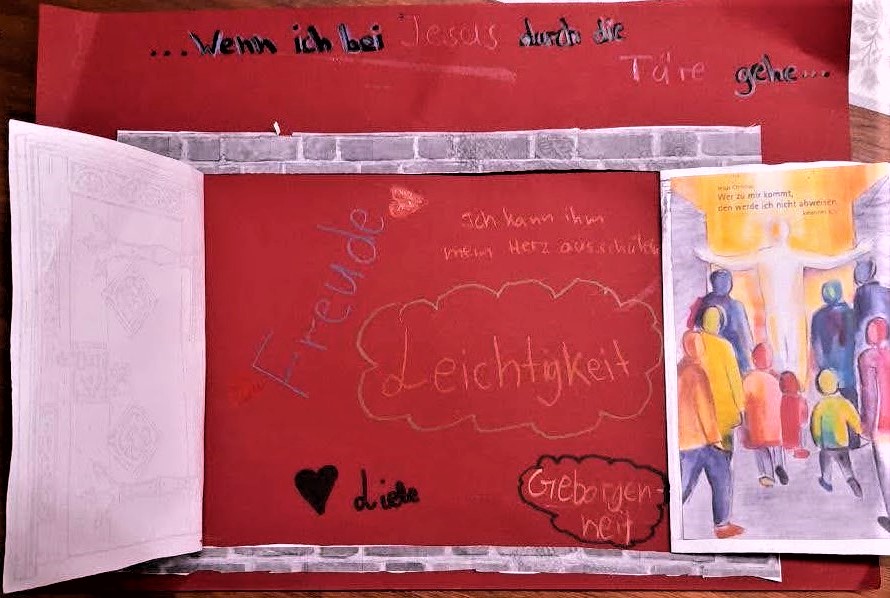 ...Wenn ich bei Jesus durch die
Türe gehe...
Jesus Christus:
Wer zu mir kommt,
den werde ich nicht abweisen.
Johannes 6,37
Freude
Ich kann ihm
mein Herz ausschütten
Leichtigkeit
Liebe
Geborgen-
heit